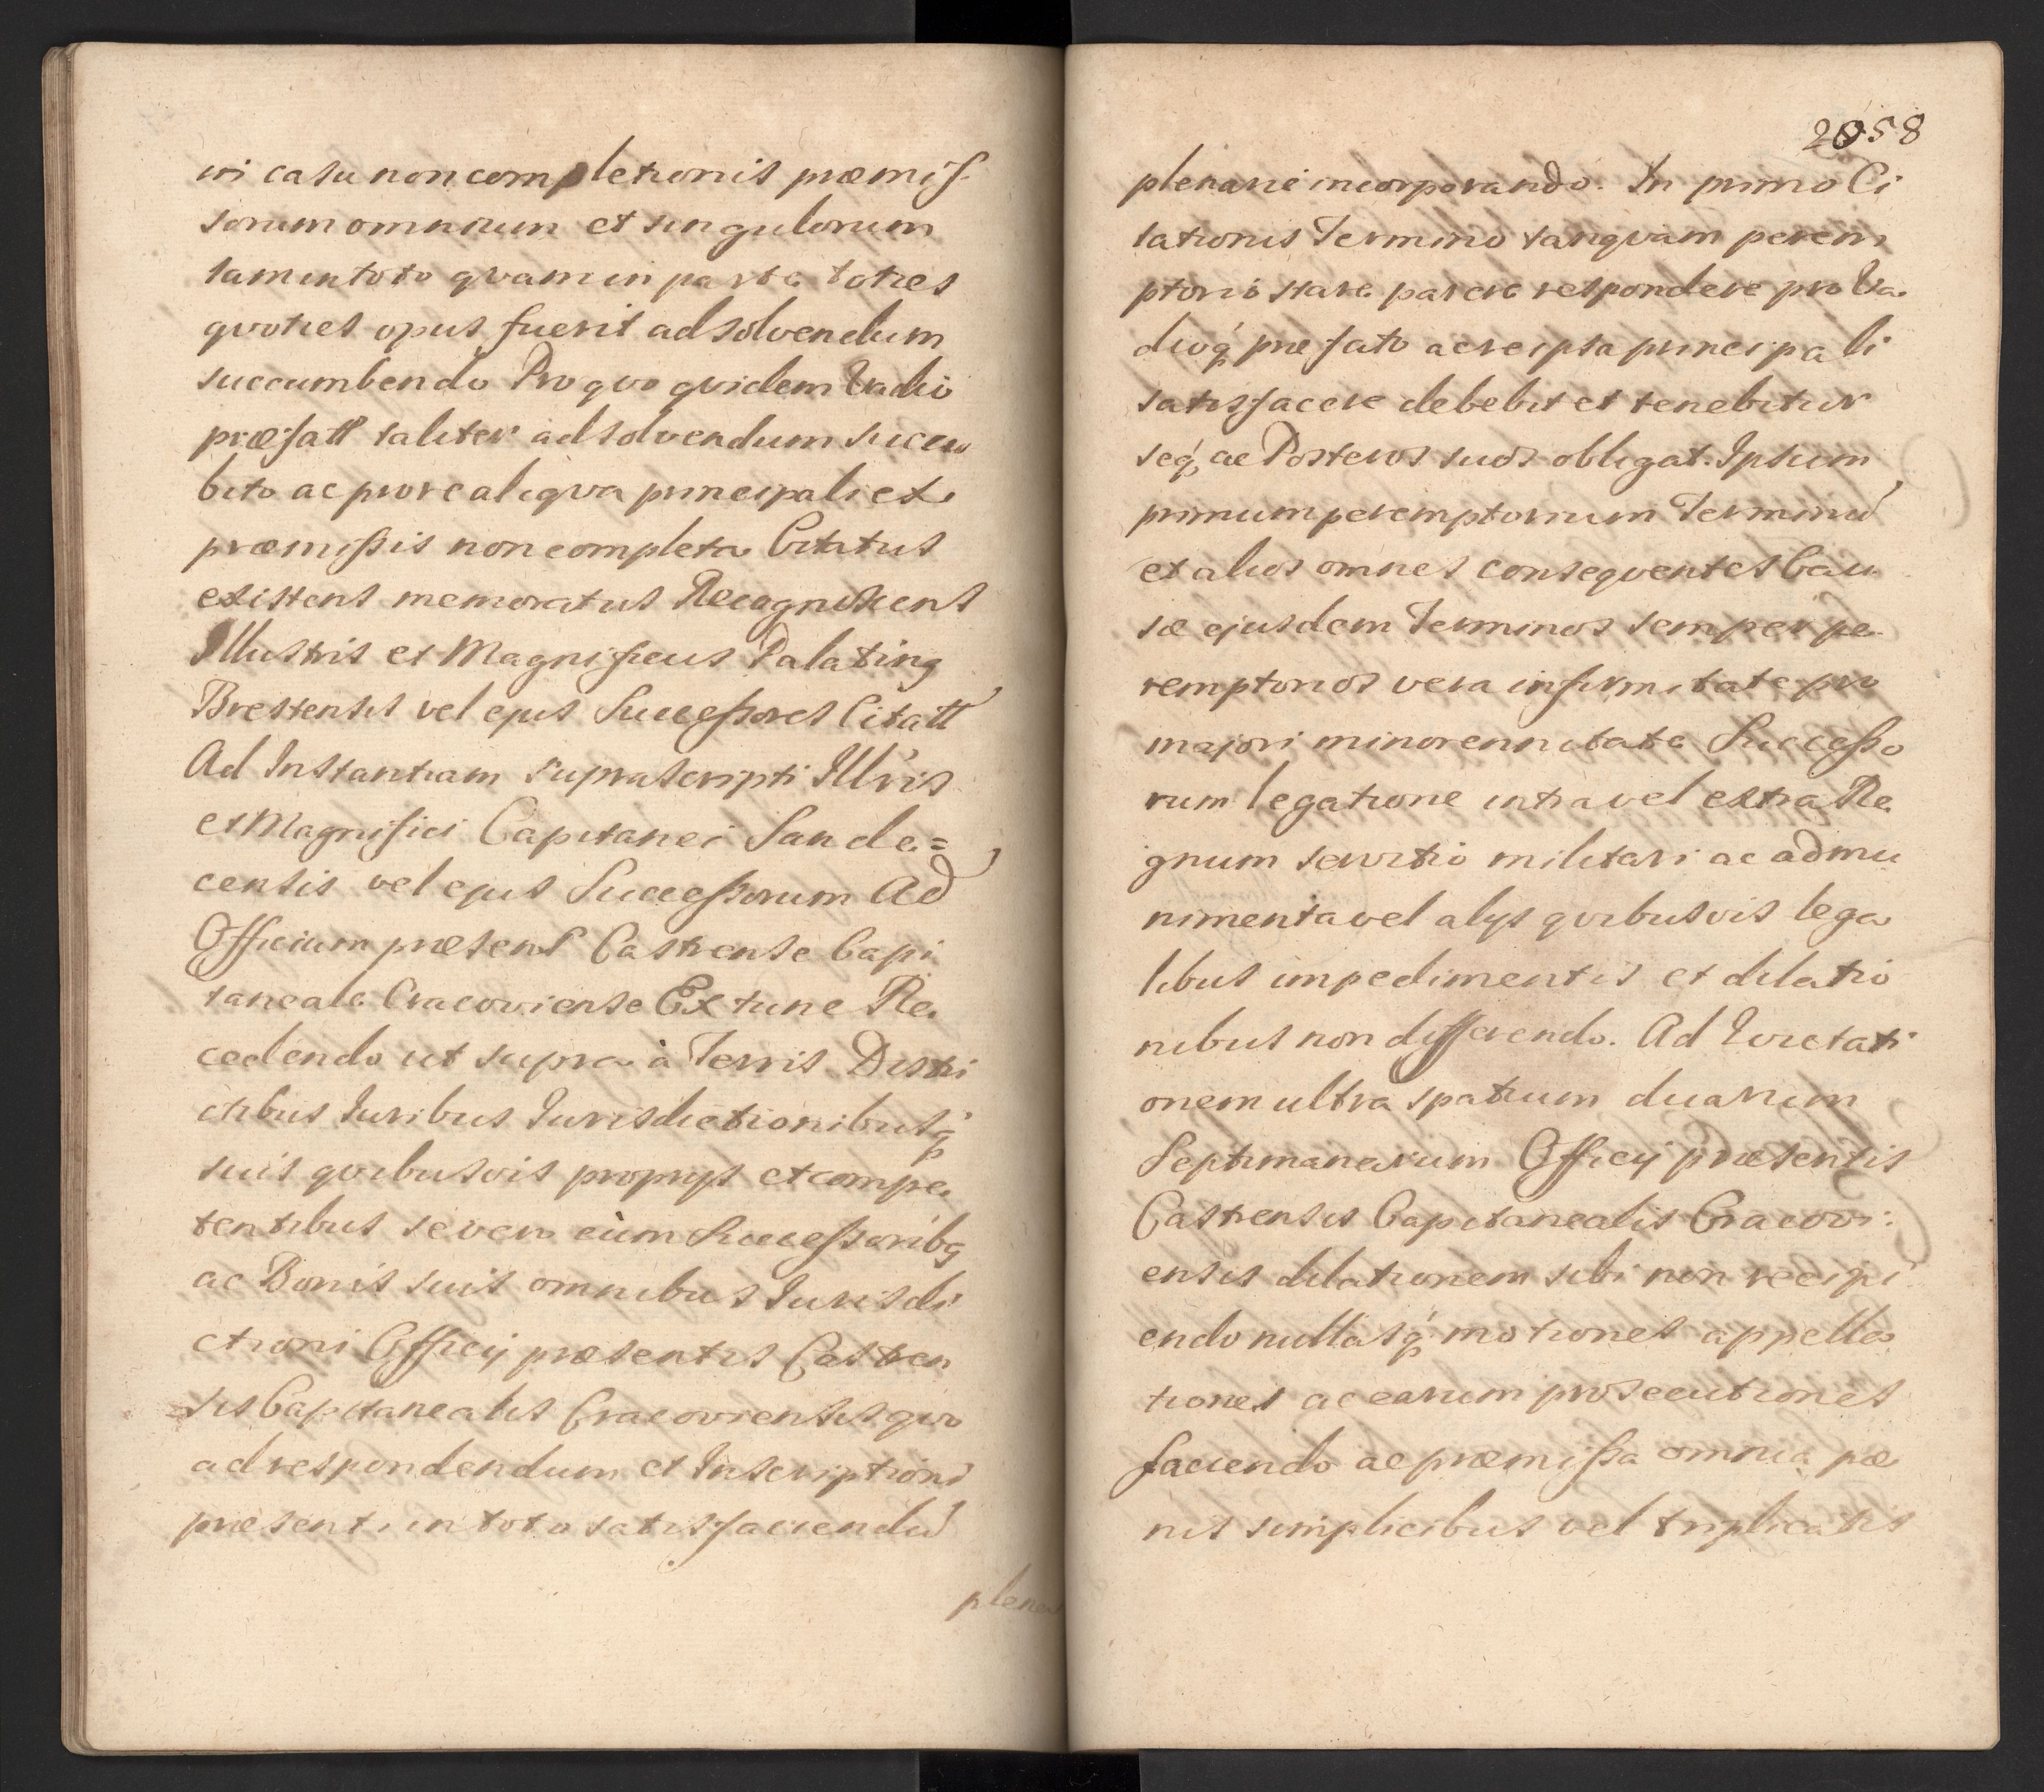 in casu non completionis præmis-
sorum omnium et singulorum
tam in toto qvam in parte toties
qvoties opus fuerit ad solvendum
succumbendo Pro qvo qvidem Vadio
præfatt taliter ad solvendum succu
bito ac pro re aliqva principali ex
præmissis non completa Citatus
existens memoratus Recognoscens
Illustris et Magnificus Palatinq
Brestensis vel ejus Successores Citatt
Ad Instantiam suprascripti Illris
et Magnifici Capitanei Sande=
censis vel ejus Successorum Ad
Officium præsens Castrense Capi
taneale Cracoviense Ex tunc Re
cedendo ut supra à Terris Distri
ctibus Iuribus Iurisdictionibusq
suis qvibusvis proprijs et compe
tentibus se vero cùm Successoribq
ac Bonis suis omnibus Iurisdi
ctioni Officij præsentis Castren
sis Capitanealis Cracoviensis qvo
ad respondendum et Inscriptioni
præsenti in toto satisfaciendũ
plena
2058
plenarie incorporando. In primo Ci
tationis Termino tanqvam perem
ptorio stare parere respondere pro Va
dioq præfato ac re ipsa principali
satisfacere debebit et tenebitur
seq ac Posteros suos obligat. Ipsum
primum peremptorium Terminũ
et alios omnes conseqventes Cau
sæ ejusdem Terminos semper pe
remptorios vera infirmitate pro
majori minorennitate Successo
rum legatione intra vel extra Re
gnum servitio militari ac ad mu
nimenta vel alijs qvibusvis lega
libus impedimentis et dilatio
nibus non differendo. Ad Evictati
onem ultra spatium duarum
Septimanarum Officij præsentis
Castrensis Capitanealis Cracovi:
ensis dilationem sibi non recipi
endo nullasq motiones appella
tiones ac earum prosecutiones
faciendo ac præmissa omnia pæ
nis simplicibus vel triplicatis